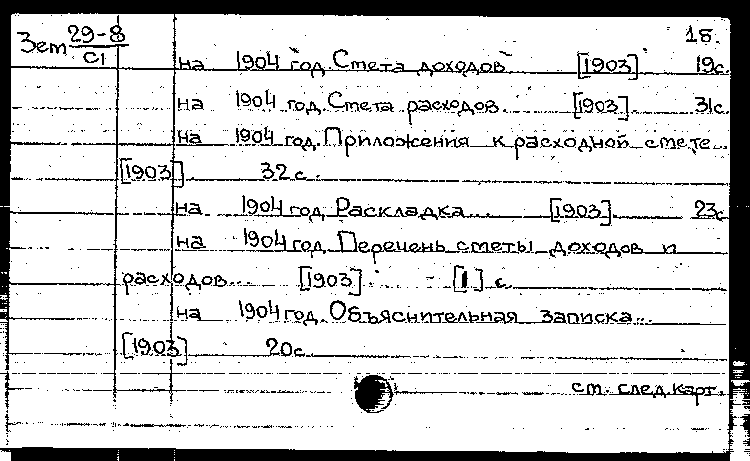 Зем 29-8 18.
С1
на 1904 год. Смета доходов [1903] 19с.
на 1904 год. Смета расходов. [1903] 31с.
на 1904 год. Приложения к расходной смете...
[1903] 32 с.
на 1904 год. Раскладка... [1903]. 23с.
на 1904 год. Перечень сметы доходов и
расходов... [1903]. - [1] с.
на 1904 год. Объяснительная записка...
[1903] 20с.
см. след. карт.